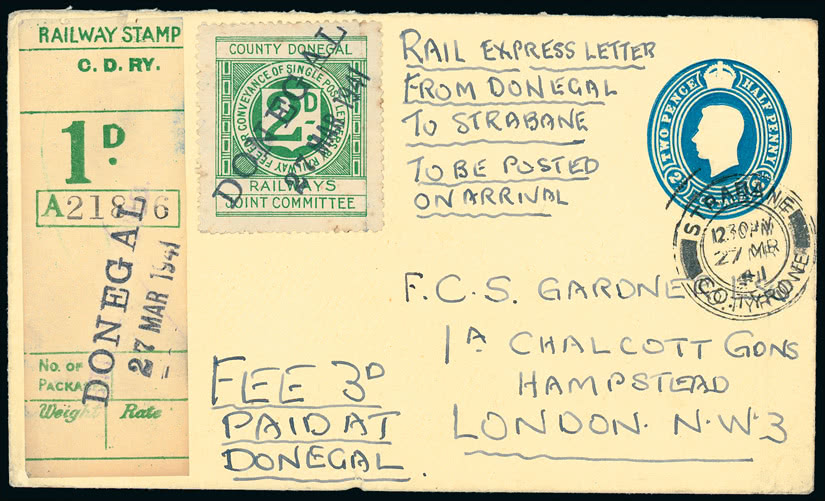 RAILWAY STAMP
C. D. RY.
1D.
A21
DONEGAL
27 MAR 1941
No. OF
Weight Rate
COUNTY DONEGAL
FEE FOR CONVEYANCE OF SINGLE POST LETTER BY RAILWAY
2D
RAILWAYS
JOINT COMMITTEE
DONEGAL
27 MAR 1941
RAIL EXPRESS LETTER
FROM DONEGAL
TO STRABANE
TO BE POSTED
ON ARRIVAL
TWO PENCE HALF PENNY
STRABANE
12 30 PM
27 MR
41
CO. TYRONE
F.C.S. GARDNE
1A CHALCOTT GDNS
HAMPSTEAD
LONDON. N.W.3
FEE 3D
PAID AT
DONEGAL.